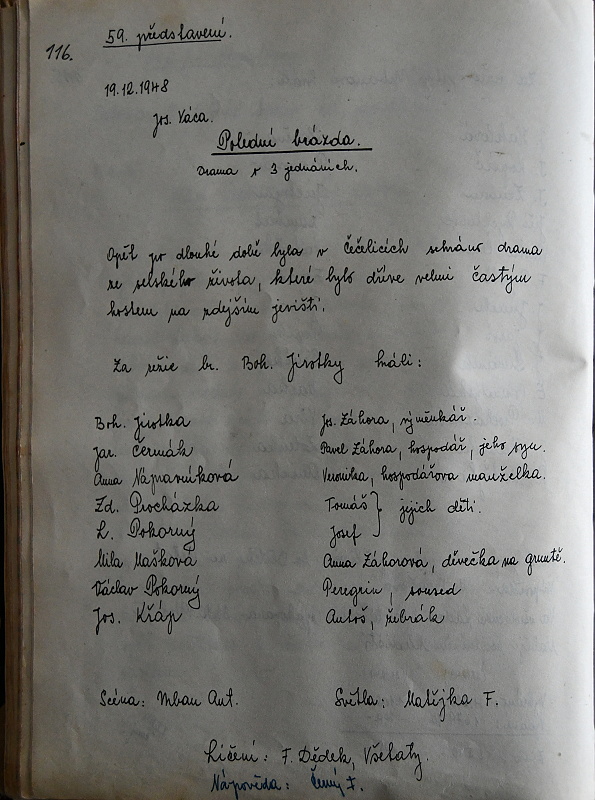 59. představení.
116.
19.12.1948
Jos. Váca.
Polední brázda.
Drama o 3 jednáních.
Opět po dlouhé době byla v Čečelicích sehráno drama
ze selského života, které bylo dříve velmi častým
hostem na zdejším jevišti.
Za režie br. Boh. Jirotky hráli:
Boh. Jirotka Jos. Záhora, výměnkář.
Jar. Čermák Pavel Záhora, hospodář, jeho syn.
Anna Nápravníková Veronika, hospodářova manželka.
Zd. Procházka Tomáš } jejich děti.
L. Pokorný Josef
Mila Mašková Anna Záhorová, děvečka na gruntě.
Václav Pokorný Peregrin, soused
Jos. Křáp Antoš, žebrák
Scéna: Urban Ant. Světla: Matějka F.
Líčení: F. Dědek, Všetaty.
Nápověda: Černý F.